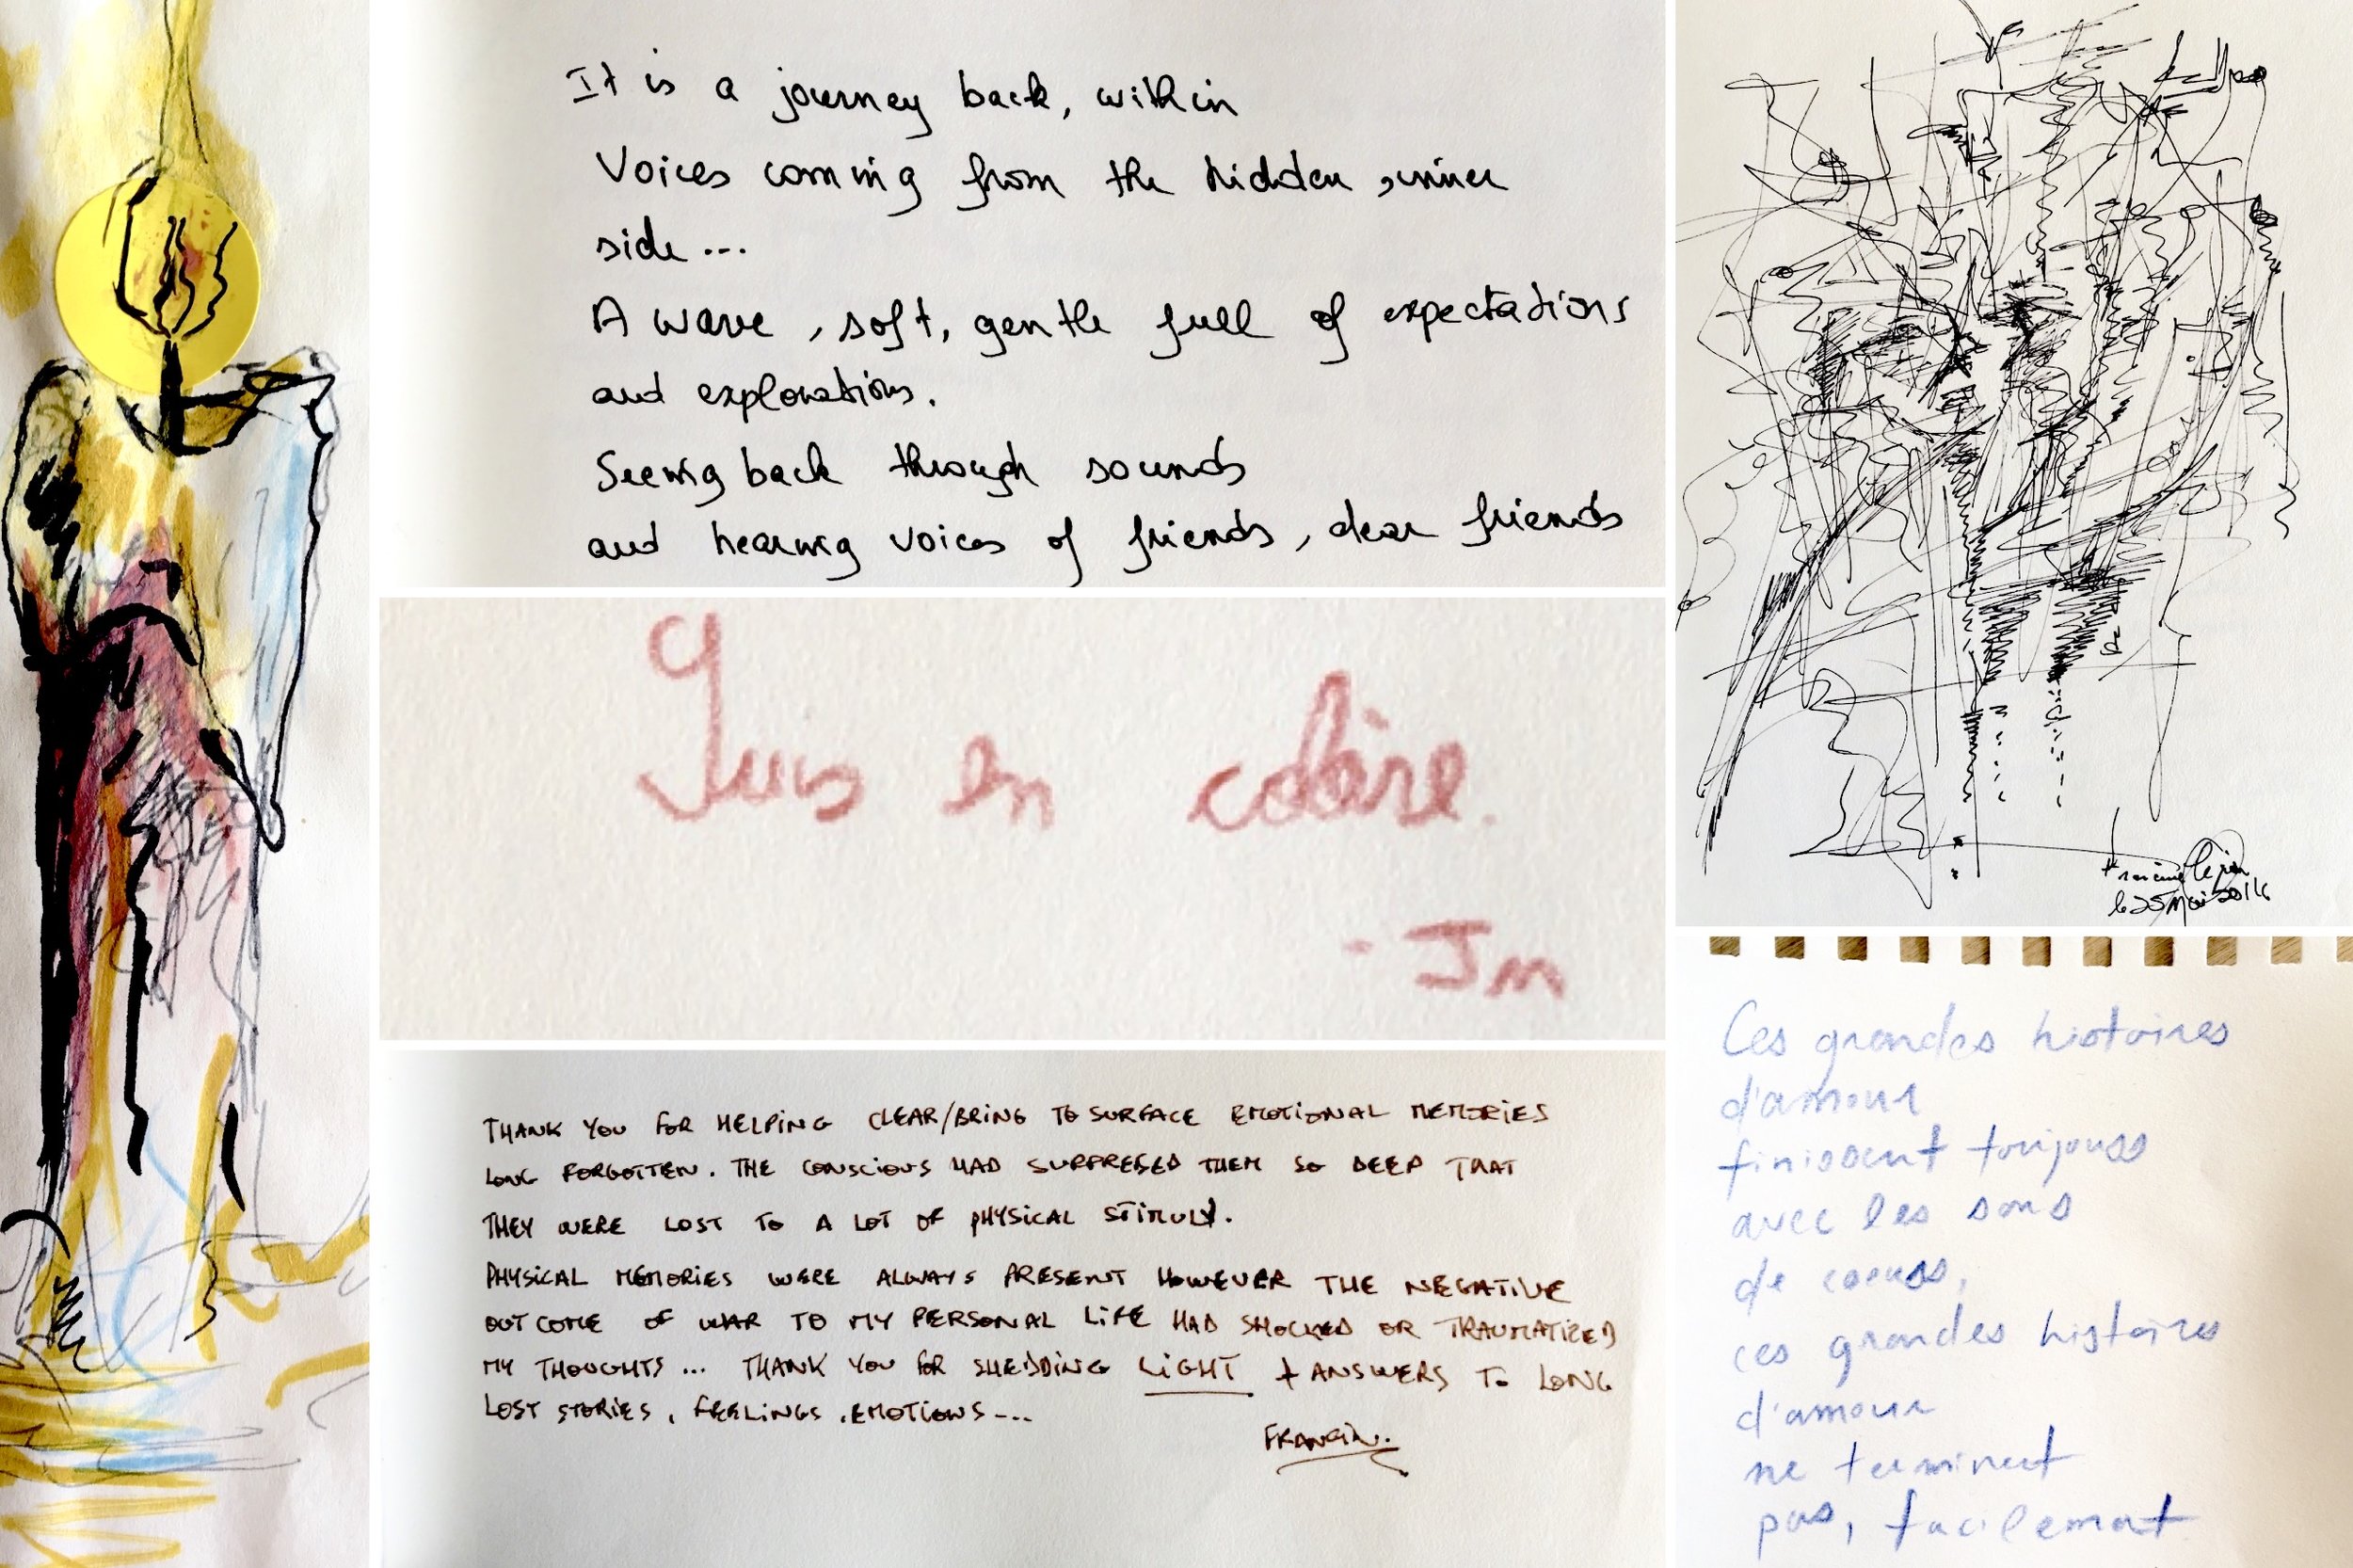 It is a journey back, within
Voices comming from the hidden, inner
side...
A wave, soft, gentle full of expectations
and explorations.
Seeing back through sounds
and hearing voices of friends, dear friends
Juis en colère.
- Jm
THANK YOU FOR HELPING CLEAR/BRING TO SURFACE EMOTIONAL MEMORIES
LONG FORGOTTEN. THE CONSCIOUS HAD SURPRESED THEM SO DEEP THAT
THEY WERE LOST TO A LOT OF PHYSICAL STIMULY.
PHYSICAL MEMORIES WERE ALWAYS PRESENT HOWEVER THE NEGATIVE
OUTCOME OF WAR TO MY PERSONAL LIFE HAD SHOCKED OR TRAUMATIZED
MY THOUGHTS... THANK YOU FOR SHEDDING LIGHT + ANSWERS TO LONG
LOST STORIES, FEELINGS, EMOTIONS...
le 25 Mai 2016
Ces grandes histoires
d'amour
finissent toujours
avec les sons
de coeurs,
ces grandes histoires
d'amour
ne terminent
pas, facilement